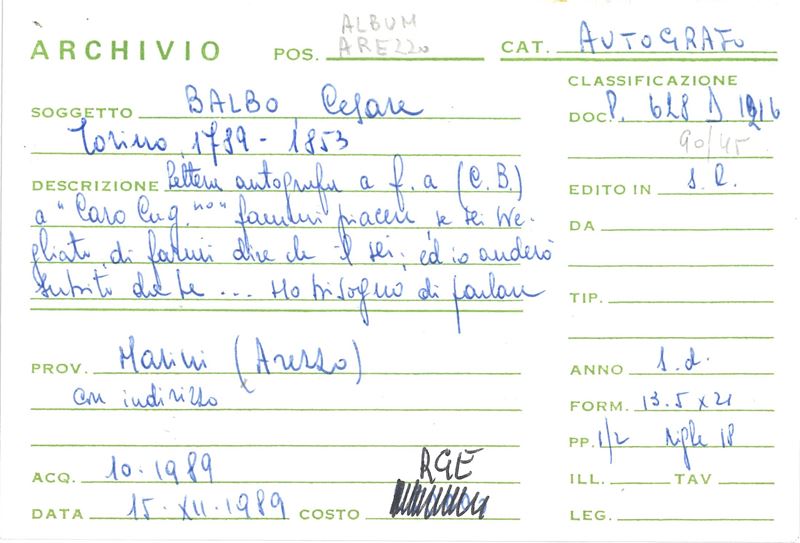 ALBUM
ARCHIVIO POS. AREZZO CAT. AUTOGRAFO
CLASSIFICAZIONE
SOGGETTO BALBO, Cesare DOC. P. 628 D 1916
Torino, 1789 - 1853 90/45
DESCRIZIONE Lettera autografa a f.a (C.B.) EDITO IN S.R.
a "Caro Cug.no" fammi piacere, se sei sve- DA
gliato, di farmi dire che il sei, ed io anderò
subito da te ... Ho bisogno di parlare TIP.
PROV. Marini (Arezzo) ANNO s.d.
con indirizzo FORM. 13.5 x 21
PP. 1/2 righe 18
ACQ. 10.1989 RGE ILL. TAV
DATA 15.XII.1989 COSTO LEG.